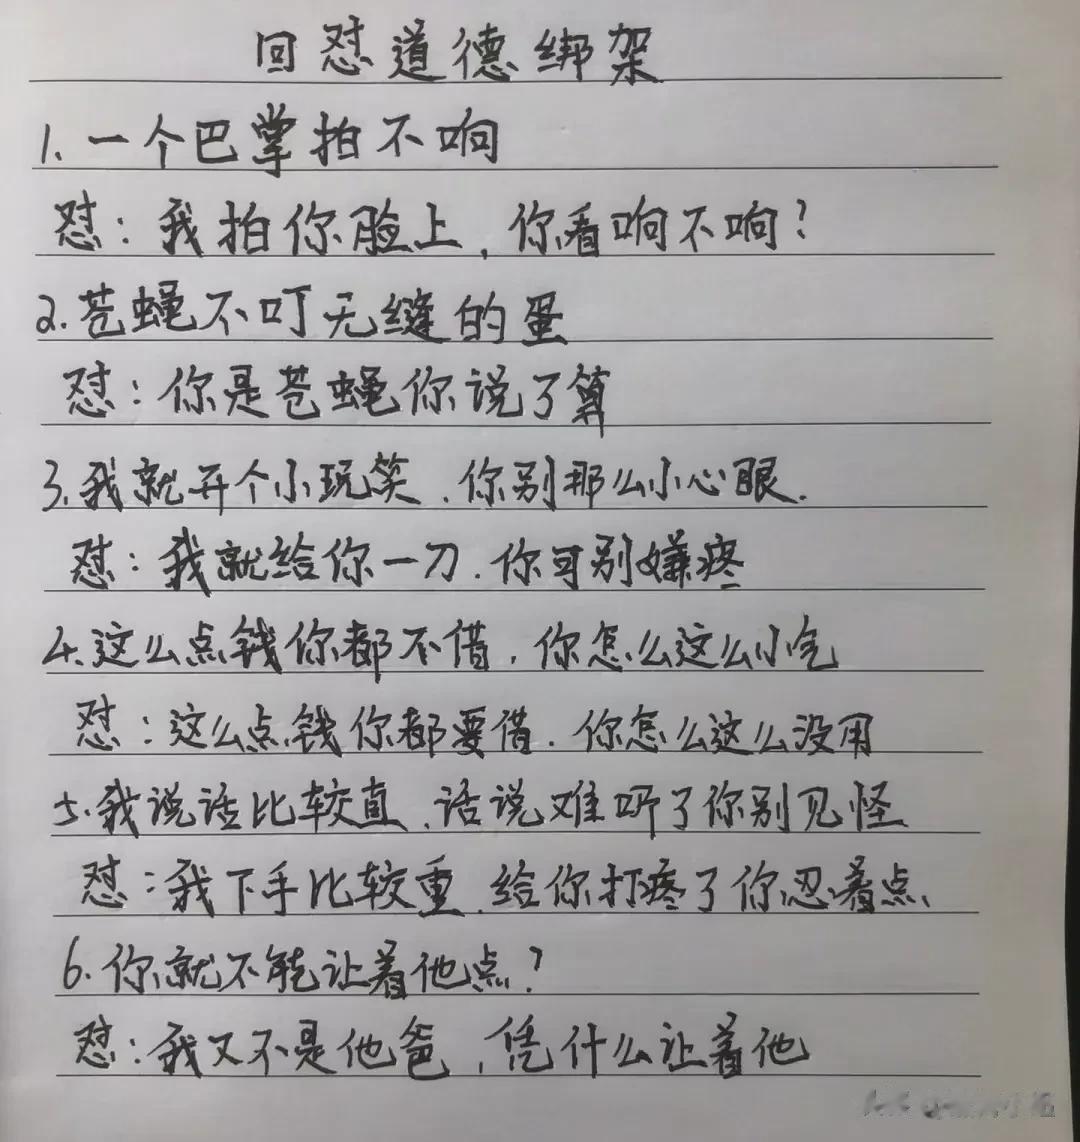 回怼道德绑架
1.一个巴掌拍不响
怼：我拍你脸上，你看响不响？
2.苍蝇不叮无缝的蛋
怼：你是苍蝇你说了算
3.我就开个小玩笑，你别那么小心眼.
怼：我就给你一刀.你可别嫌疼
4.这么点钱你都不借，你怎么这么小气
怼：这么点钱你都要借.你怎么这么没用
5.我说话比较直，话说难听了你别见怪
怼：我下手比较重，给你打疼了你忍着点.
6.你就不能让着他点？
怼：我又不是他爸，凭什么让着他